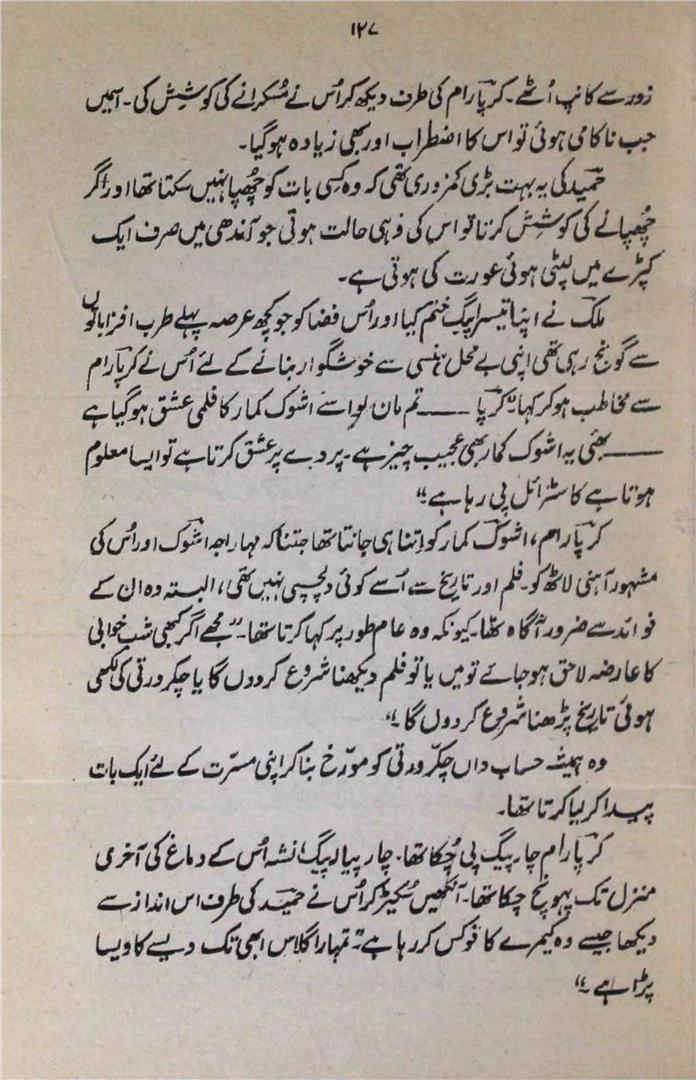 ۱۲۷
زور سے کانپ اُٹھے۔ کرپا رام کی طرف دیکھ کر اُس نے مُسکرانے کی کوشش کی۔ اسمیں
جب ناکامی ہوئی تو اس کا اضطراب اور بھی زیادہ ہوگیا۔
حمید کی یہ بہت بڑی کمزوری تھی کہ وہ کِسی بات کو چُھپا نہیں سکتا تھا اور اگر
چُھپانے کی کوشش کرتا تو اس کی وُہی حالت ہوتی جو آندھی میں صرف ایک
کپڑے میں لپٹی ہوئی عورت کی ہوتی ہے۔
ملک نے اپنا تیسرا پیگ ختم کیا اور اُس فضا کو جو کچھ عرصہ پہلے طرب افزا باتوں
سے گونج رہی تھی اپنی بے محل ہنسی سے خوشگوار بنانے کے لئے اُس نے کرپا رام
سے مخاطب ہو کر کہا ”کرپا ــــــ تم مان لو اسے اشوک کمار کا فلمی عشق ہو گیا ہے
ــــــ بھئی یہ اشوک کمار بھی عجیب چیز ہے۔ پردے پر عشق کرتا ہے تو ایسا معلوم
ہوتا ہے کاسٹرائل پی رہا ہے۔“
کرپا رام، اشوک کمار کو اِتنا ہی جانتا تھا جتنا کہ مہاراجہ اشوک اور اُس کی
مشہور آہنی لاٹھ کو۔ فلم اور تاریخ سے اُسے کوئی دلچسپی نہیں تھی، البتہ وہ ان کے
فوائد سے ضرور آگاہ تھا۔ کیونکہ وہ عام طور پر کہا کرتا تھا۔ ”مجھے اگر کبھی شب خوابی
کا عارضہ لاحق ہو جائے تو میں یا تو فلم دیکھنا شروع کردوں گا یا چکرورتی کی لکھی
ہوئی تاریخ پڑھنا شروع کردوں گا۔“
وہ ہمیشہ حساب داں چکّرورتی کو مورّخ بنا کر اپنی مسرّت کے لئے ایک بات
پیدا کر لیا کرتا تھا۔
کرپا رام چار پیگ پی چُکا تھا۔ چار پیالہ پیگ، نشہ اُس کے دماغ کی آخری
منزل تک پہونچ چکا تھا۔ آنکھیں سُکیڑ کر اُس نے حمید کی طرف اس انداز سے
دیکھا جیسے وہ کیمرے کا فوکس کر رہا ہے ”تمہارا گلاس ابھی تک ویسے کا ویسا
پڑا ہے۔“